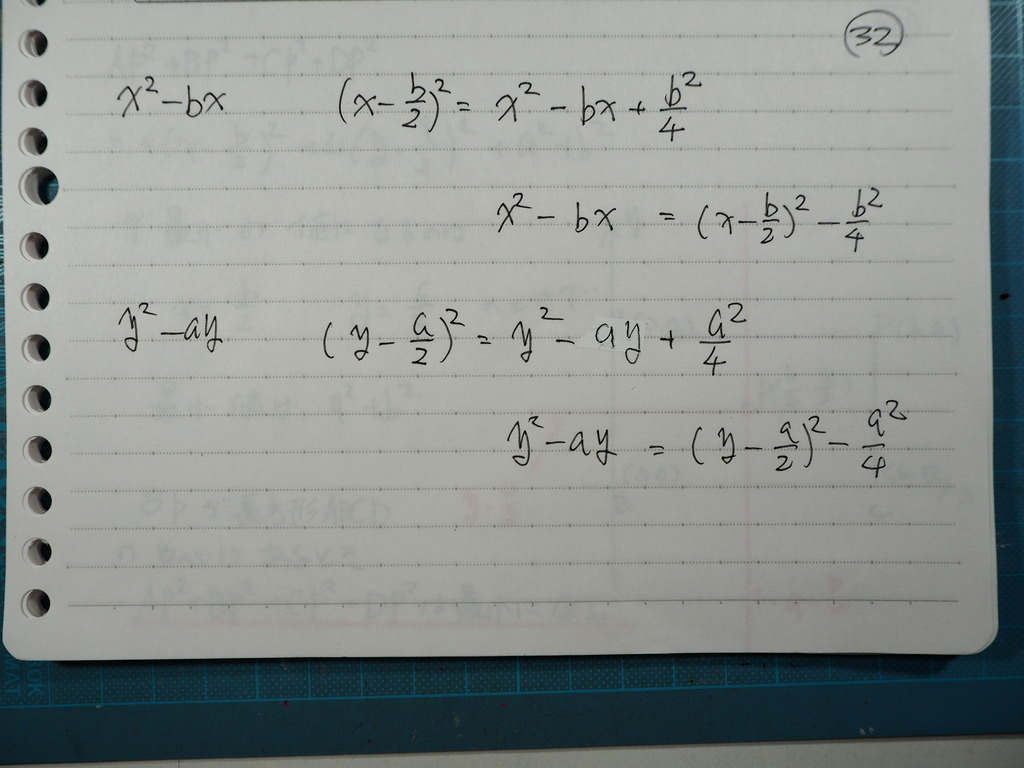 32
x² - bx (x - b/2)² = x² - bx + b²/4
x² - bx = (x - b/2)² - b²/4
y² - ay (y - a/2)² = y² - ay + a²/4
y² - ay = (y - a/2)² - a²/4